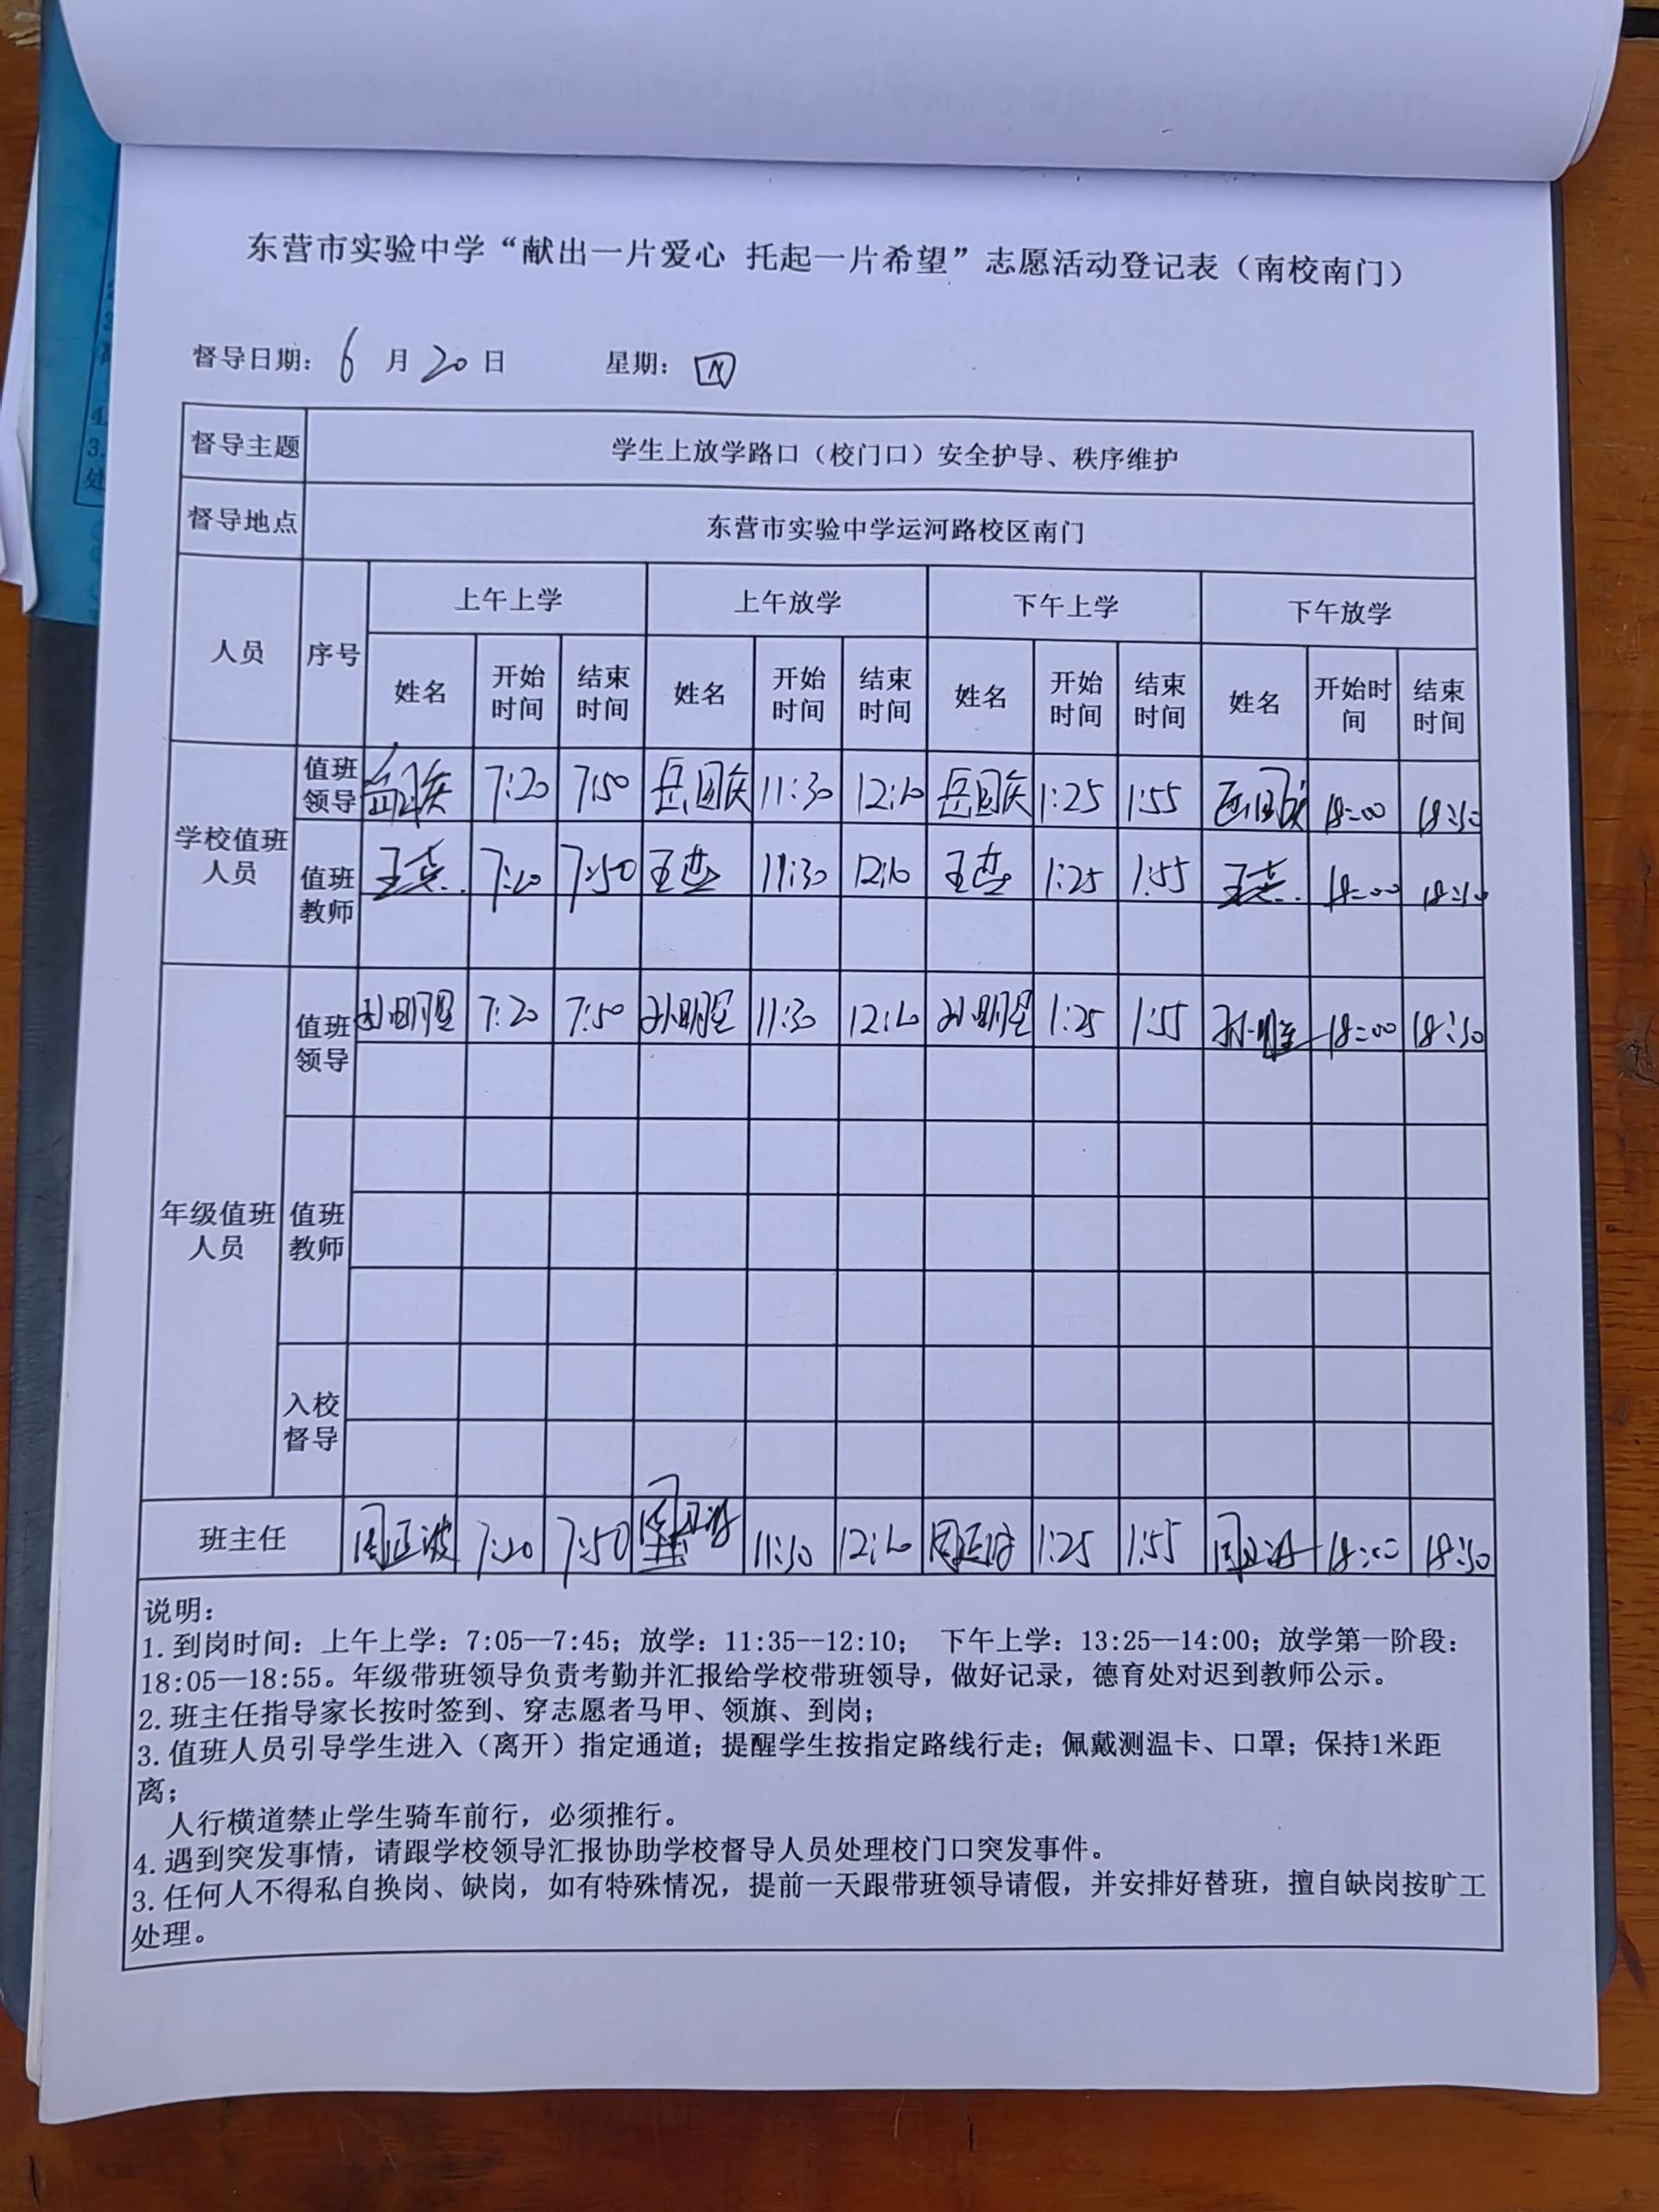 东营市实验中学“献出一片爱心 托起一片希望”志愿活动登记表（南校南门）
督导日期：6月20日 星期：四
督导主题 学生上放学路口（校门口）安全护导、秩序维护
督导地点 东营市实验中学运河路校区南门
人员 序号 上午上学 上午放学 下午上学 下午放学
姓名 开始时间 结束时间 姓名 开始时间 结束时间 姓名 开始时间 结束时间 姓名 开始时间 结束时间
学校值班人员
值班领导 7:20 7:50 11:30 12:10 1:25 1:55 18:00 18:50
值班教师 7:20 7:50 11:30 12:10 1:25 1:55 18:00 18:50
年级值班人员
值班领导 7:20 7:50 11:30 12:10 1:25 1:55 18:00 18:50
值班教师
入校督导
班主任 周正波 7:20 7:50 11:30 12:10 1:25 1:55 18:00 18:50
说明：
1.到岗时间：上午上学：7:05--7:45；放学：11:35--12:10； 下午上学：13:25--14:00；放学第一阶段：
18:05--18:55。年级带班领导负责考勤并汇报给学校带班领导，做好记录，德育处对迟到教师公示。
2.班主任指导家长按时签到、穿志愿者马甲、领旗、到岗；
3.值班人员引导学生进入（离开）指定通道；提醒学生按指定路线行走；佩戴测温卡、口罩；保持1米距
离；
人行横道禁止学生骑车前行，必须推行。
4.遇到突发事情，请跟学校领导汇报协助学校督导人员处理校门口突发事件。
3.任何人不得私自换岗、缺岗，如有特殊情况，提前一天跟带班领导请假，并安排好替班，擅自缺岗按旷工
处理。